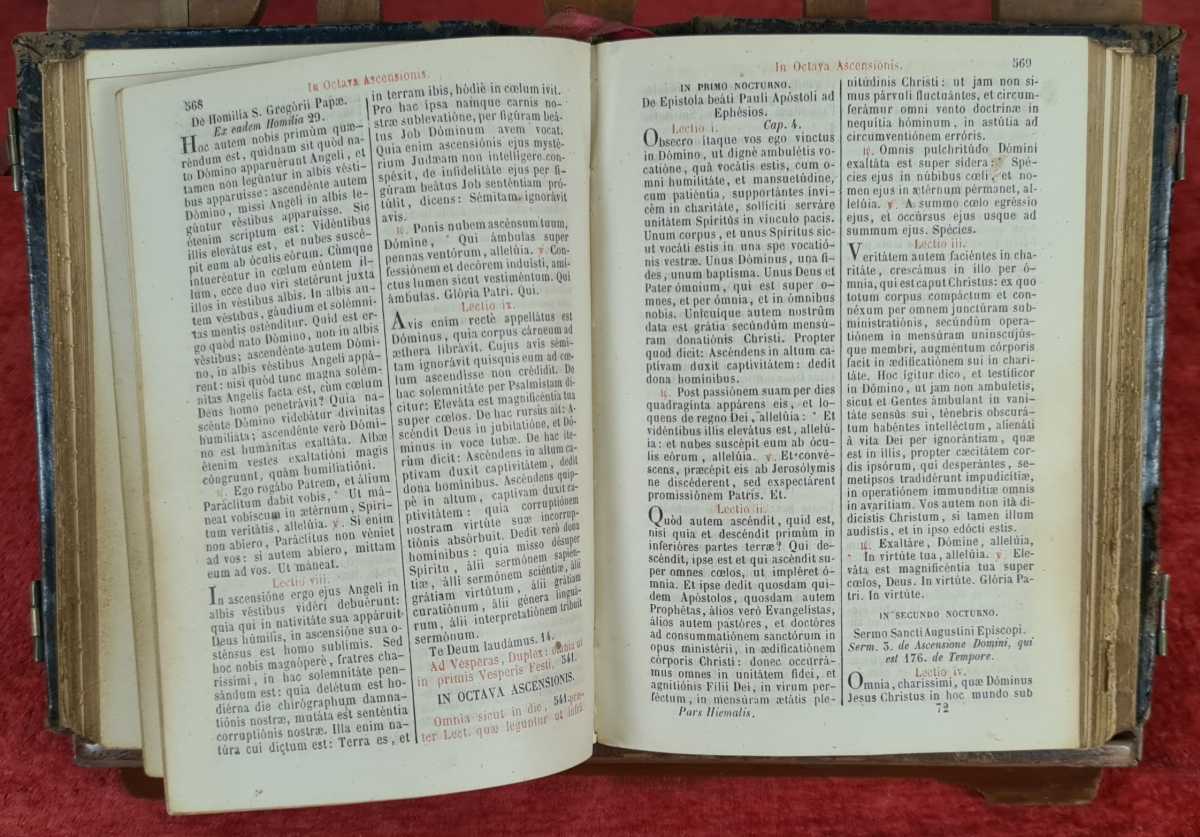 568
In Octava Ascensionis.
De Homilia S. Gregórii Papæ.
Ex eadem Homilia 29.
Hoc autem nobis primùm quæ-
réndum est, quidnam sit quòd na-
to Dómino apparuérunt Angeli, et
tamen non legúntur in albis vésti-
bus apparuisse: ascendénte autem
Dómino, missi Angeli in albis le-
gúntur véstibus apparuisse. Sic
étenim scriptum est: Vidéntibus
illis elevátus est, et nubes suscé-
pit eum ab óculis eórum. Cùmque
intueréntur in cœlum eúntem il-
lum, ecce duo viri stetérunt juxta
illos in véstibus albis. In albis au-
tem véstibus, gáudium et solémni-
tas mentis osténditur. Quid est er-
go quòd nato Dómino, non in albis
véstibus; ascendénte autem Dómi-
no, in albis véstibus Angeli appá-
rent: nisi quòd tunc magna solém-
nitas Angelis facta est, cùm cœlum
Deus homo penetrávit? Quia na-
scénte Dómino videbátur divínitas
humiliata; ascendénte verò Dómi-
no est humánitas exaltáta. Albæ
étenim vestes exaltatióni magis
cóngruunt, quàm humiliatióni.
℟. Ego rogábo Patrem, et álium
Paráclitum dabit vobis, * Ut má-
neat vobiscum in ætérnum, Spíri-
tum veritátis, allelúia. ℣. Si enim
non abíero, Paráclitus non véniet
ad vos: si autem abíero, mittam
eum ad vos. Ut máneat.
Lectio viii.
In ascensióne ergo ejus Angeli in
albis véstibus vidéri debuérunt:
quia qui in nativitáte sua appáruit
Deus húmilis, in ascensióne sua o-
sténsus est homo sublímis. Sed
hoc nobis magnóperè, fratres cha-
ríssimi, in hac solemnitáte pen-
sándum est: quia delétum est ho-
diérna die chirógraphum damna-
tiónis nostræ, mutáta est senténtia
corruptiónis nostræ. Illa enim na-
túra cui dictum est: Terra es, et
in terram ibis, hódiè in cœlum ivit.
Pro hac ipsa namque carnis no-
stræ sublevatióne, per figúram beá-
tus Job Dóminum avem vocat.
Quia enim ascensiónis ejus mysté-
rium Judæam non intelligere con-
spéxit, de infidelitáte ejus per fi-
gúram beátus Job senténtiam pró-
túlit, dicens: Sémitam ignorávit
avis.
℟. Ponis nubem ascénsum tuum,
Dómine, * Qui ámbulas super
pennas ventórum, allelúia. ℣. Con-
fessiónem et decórem induísti, ami-
ctus lumen sicut vestiméntum. Qui
ámbulas. Glória Patri. Qui.
Lectio ix.
Avis enim rectè appellátus est
Dóminus, quia corpus cárneum ad
æthera librávit. Cujus avis sémi-
tam ignorávit quisquis eum ad cœ-
lum ascendísse non crédidit. De
hac solemnitáte per Psalmístam di-
citur: Eleváta est magnificéntia tua
super cœlos. De hac rursùs ait: A-
scéndit Deus in jubilatióne, et Dó-
minus in voce tubæ. De hac íte-
rùm dicit: Ascéndens in altum ca-
ptívam duxit captivitátem, dedit
dona homínibus. Ascéndens quip-
pè in altum, captívam duxit ca-
ptivitátem: quia corruptiónem
nostram virtúte suæ incorrup-
tiónis absórbuit. Dedit verò dona
homínibus: quia misso désuper
Spíritu, álii sermónem sapién-
tiæ, álii sermónem sciéntiæ, álii
grátiam virtútum, álii grátiam
curatiónum, álii génera linguá-
rum, álii interpretatiónem tríbuit
sermónum.
Te Deum laudámus. 14.
Ad Vesperas, Duplex: omnia ut
in primis Vesperis Festi. 541.
IN OCTAVA ASCENSIONIS.
Omnia sicut in die, 541. præ-
ter Lect. quæ leguntur ut infra.
In Octava Ascensiónis.
569
IN PRIMO NOCTURNO.
De Epistola beáti Pauli Apóstoli ad
Ephésios.
Lectio i. Cap. 4.
Obsecro ítaque vos ego vinctus
in Dómino, ut dignè ambulétis vo-
catióne, quâ vocátis estis, cum o-
mni humilitáte, et mansuetúdine,
cum patiéntia, supportántes ínvi-
cèm in charitáte, sollíciti serváre
unitátem Spíritûs in vínculo pacis.
Unum corpus, et unus Spíritus sic-
ut vocáti estis in una spe vocatió-
nis vestræ. Unus Dóminus, una fi-
des, unum baptisma. Unus Deus et
Pater ómnium, qui est super o-
mnes, et per ómnia, et in ómnibus
nobis. Unicuíque autem nostrûm
data est grátia secúndùm mensú-
ram donatiónis Christi. Propter
quod dicit: Ascéndens in altum ca-
ptívam duxit captivitátem: dedit
dona homínibus.
℟. Post passiónem suam per dies
quadragínta appárens eis, et lo-
quens de regno Dei, allelúia: * Et
vidéntibus illis elevátus est, allelú-
ia: et nubes suscépit eum ab ócu-
lis eórum, allelúia. ℣. Et convé-
scens, præcépit eis ab Jerosólymis
ne discéderent, sed exspectárent
promissiónem Patris. Et.
Lectio ii.
Quòd autem ascéndit, quid est,
nisi quia et descéndit primùm in
inferióres partes terræ? Qui de-
scéndit, ipse est et qui ascéndit su-
per omnes cœlos, ut impléret ó-
mnia. Et ipse dedit quosdam qui-
dem Apóstolos, quosdam autem
Prophétas, álios verò Evangelístas,
álios autem pastóres, et doctóres
ad consummatiónem sanctórum in
opus ministérii, in ædificatiónem
córporis Christi: donec occurrá-
mus omnes in unitátem fídei, et
agnitiónis Fílii Dei, in virum per-
féctum, in mensúram ætátis ple-
Pars Hiemalis.
nitúdinis Christi: ut jam non si-
mus párvuli fluctuántes, et circum-
ferámur omni vento doctrínæ in
nequítia hóminum, in astútia ad
circumventiónem erróris.
℟. Omnis pulchritúdo Dómini
exaltáta est super sídera: * Spé-
cies ejus in núbibus cœli, et no-
men ejus in ætérnum pérmanet, al-
lelúia. ℣. A summo cœlo egréssio
ejus, et occúrsus ejus usque ad
summum ejus. Spécies.
Lectio iii.
Veritátem autem faciéntes in cha-
ritáte, crescámus in illo per ó-
mnia, qui est caput Christus: ex quo
totum corpus compáctum et con-
néxum per omnem junctúram sub-
ministratiónis, secúndùm opera-
tiónem in mensúram uniuscujús-
que membri, augméntum córporis
facit in ædificatiónem sui in chari-
táte. Hoc ígitur dico, et testíficor
in Dómino, ut jam non ambulétis,
sicut et Gentes ámbulant in vani-
táte sensûs sui, ténebris obscurá-
tum habéntes intelléctum, alienáti
à vita Dei per ignorántiam, quæ
est in illis, propter cæcitátem cor-
dis ipsórum, qui desperántes, se-
metípsos tradidérunt impudicítiæ,
in operatiónem immundítiæ omnis
in avarítiam. Vos autem non ità di-
dicístis Christum, si tamen illum
audístis, et in ipso edócti estis.
℟. Exaltáre, Dómine, allelúia,
* In virtúte tua, allelúia. ℣. Ele-
váta est magnificéntia tua super
cœlos, Deus. In virtúte. Glória Pa-
tri. In virtúte.
IN SECUNDO NOCTURNO.
Sermo Sancti Augustíni Episcopi.
Serm. 3. de Ascensione Domini, qui
est 176. de Tempore.
Lectio iv.
Omnia, charíssimi, quæ Dóminus
Jesus Christus in hoc mundo sub
72